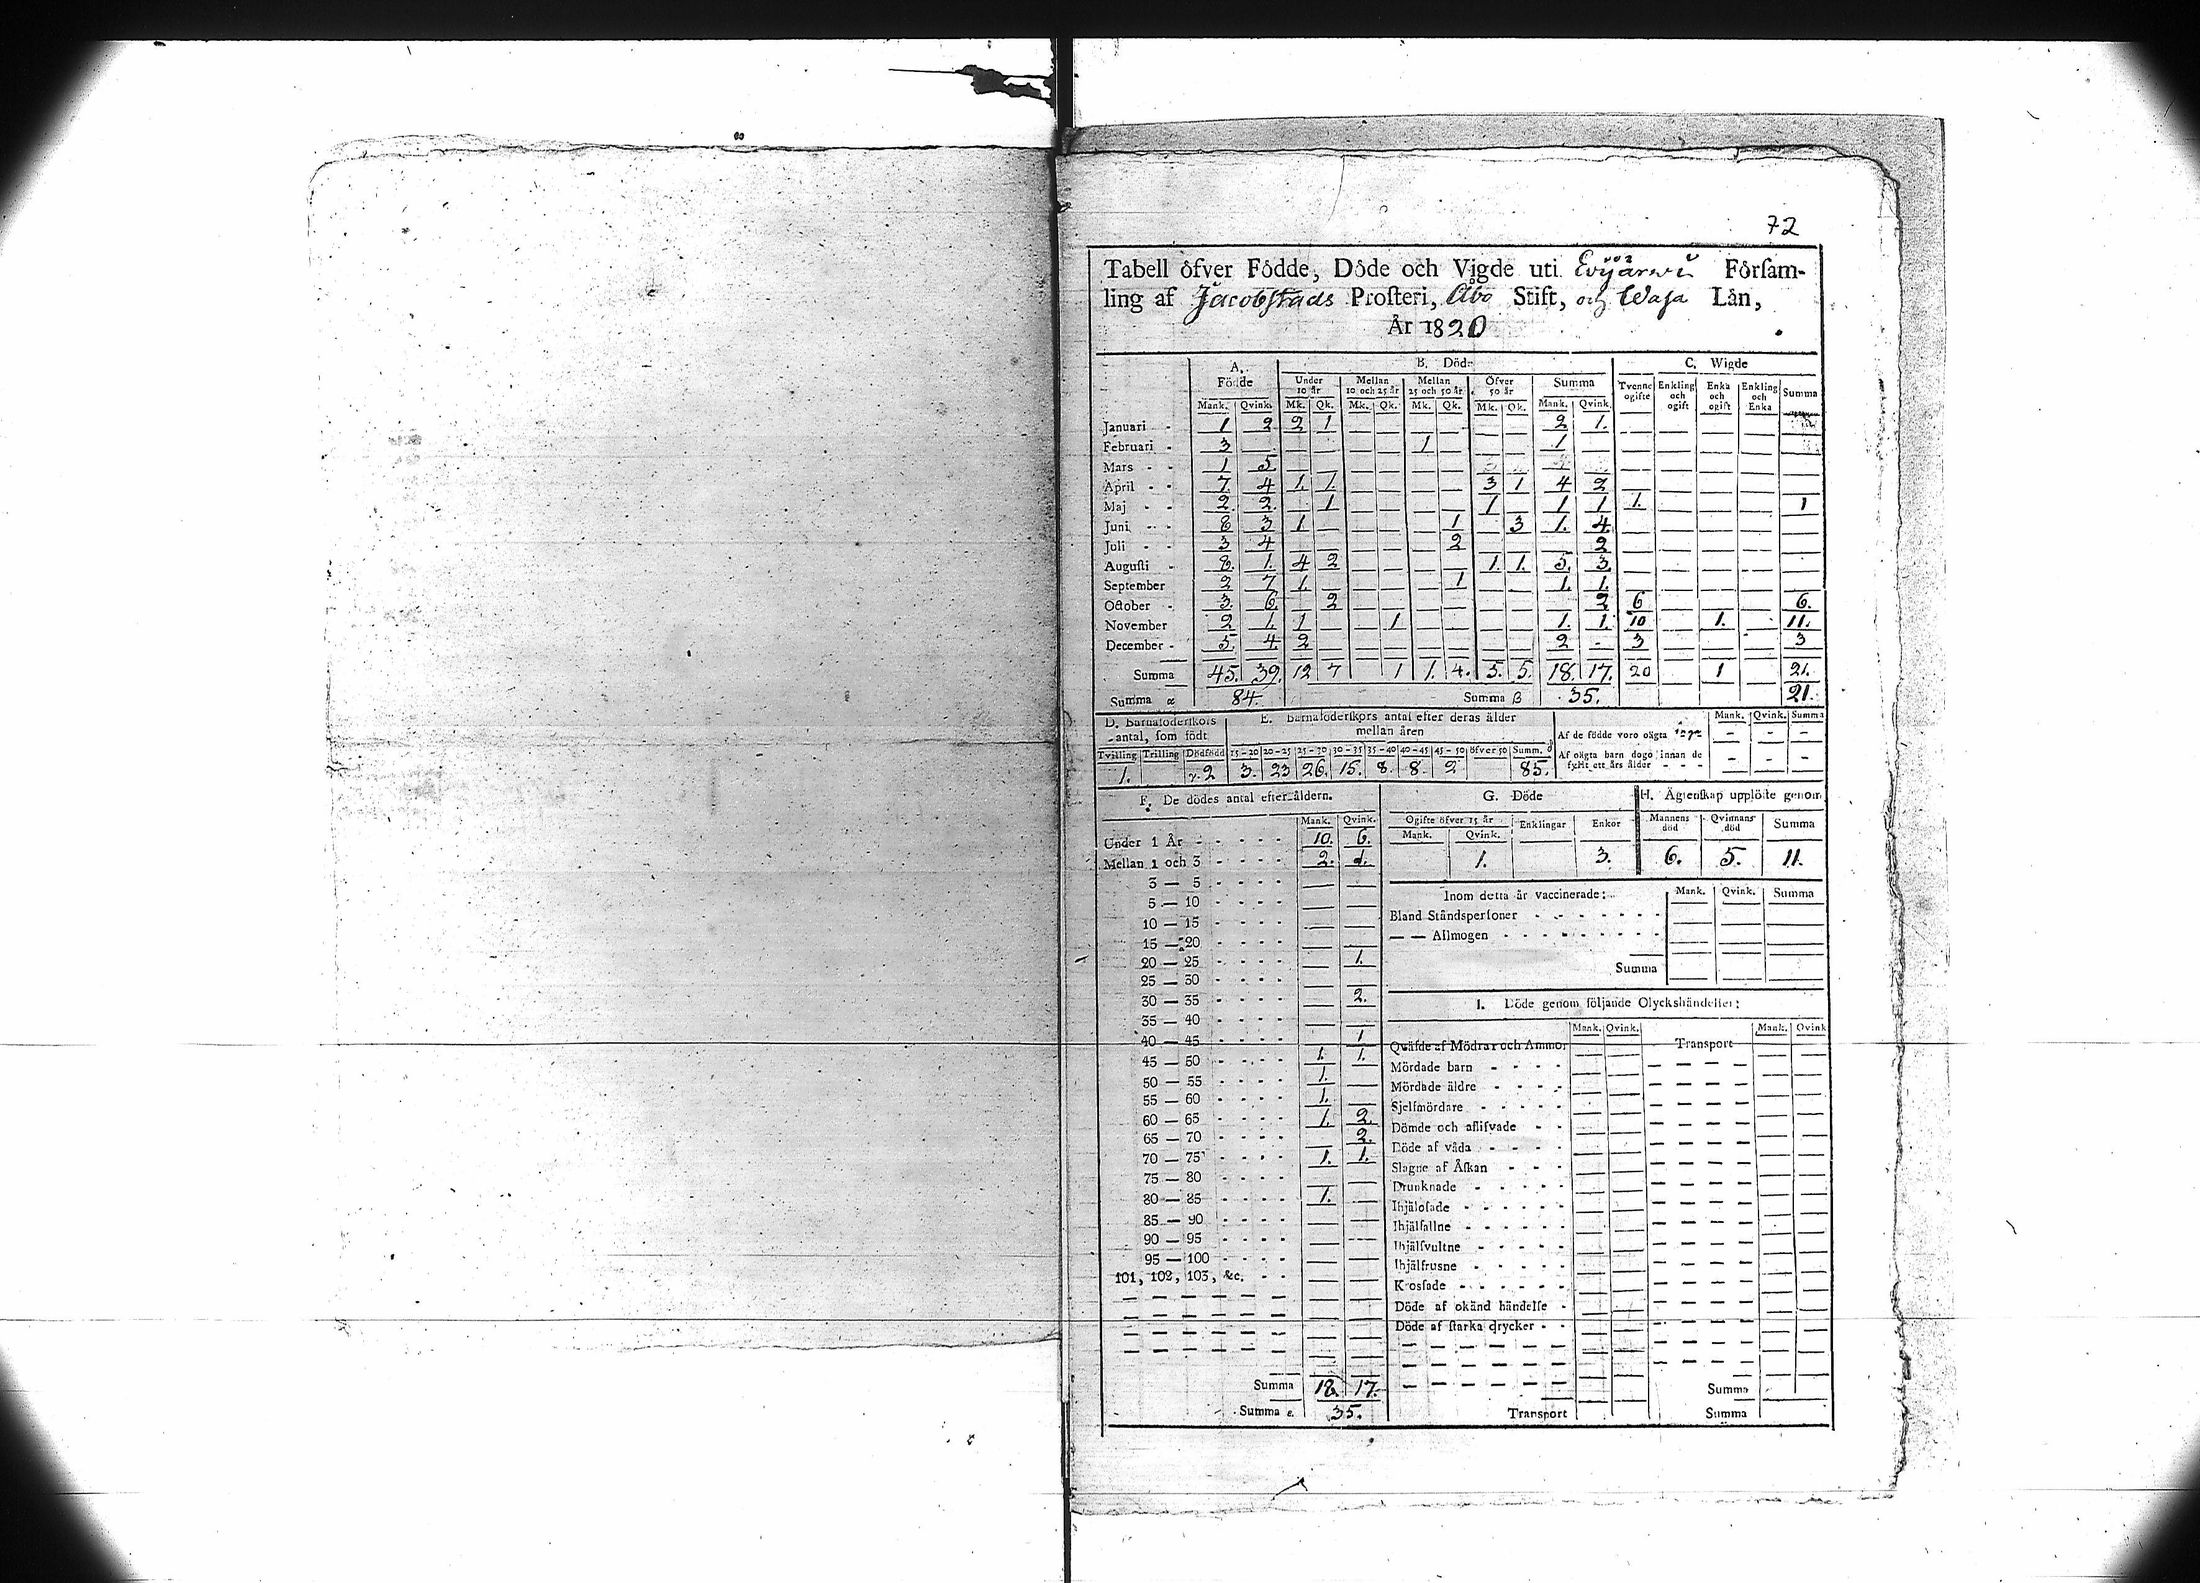 72
Tabell öfver Födde, Döde och Vigde uti Evijärvi Försam-
ling af Jacobstads Prosteri, Åbo Stift, och Wasa Län,
År 1820
A. Födde B. Döde C. Wigde
Under 10 år Mellan 10 och 25 år Mellan 25 och 50 år Öfver 50 år Summa Tvenne ogifte Enkling och ogift Enka och ogift Enkling och Enka Summa
Mank. Qvink. Mk. Qk. Mk. Qk. Mk. Qk. Mk. Qk. Mank. Qvink.
Januari - 1 2 2 1 — — — — — — 2 1. — — — —
Februari - 3 — — — — — 1 — — — 1 — — — — — —
Mars - - 1 5 — — — — — — — — — — — —
April - - 7. 4 1. 1. — — — — 3 1 4 2 — — — — —
Maj - - 2. 2. 1 — — — — 1 — 1 1 1. — — — 1
Juni - - 8 3 1 — — — — 1 3 1. 4. — — — — —
Juli - - 3 4 — — — — — 2 — — — 2 — — — — —
Augusti - 8. 1. 4 2 — — — — 1. 1. 5. 3. — — — — —
September 2 7 1. — — — — 1 — — 1. 1. — — — — —
October - 3. 6. 2 — — — — — — 2 6 — — — 6.
November 2 1. 1 — — 1 — — — — 1. 1. 10 — 1. — 11.
December - 5. 4. 2 — — — — — — — 2 - 3 — — — 3
Summa 45. 39. 12 7 1 1. 4. 5. 5. 18. 17. 20 1 21.
Summa α 84. Summa β 35. 21.
D. Barnaföderskors antal, som födt E. Barnaföderskors antal efter deras ålder mellan åren Mank. Qvink. Summa
Af de födde voro oägta inga — — —
Tvilling Trilling Dödfödd 15-20 20-25 25-30 30-35 35-40 40-45 45-50 öfver 50 Summ. Af oägta barn dogo innan de
1. 2 3. 23 26. 15. 8. 8. 2 85. fyllt ett års ålder - - - - - -
F. De dödes antal efter åldern.
Mank. Qvink.
Under 1 År - - - - - 10. 6.
Mellan 1 och 3 - - - - 2. 1.
3 — 5 - - - - — —
5 — 10 - - - - — —
10 — 15 - - - - — —
15 — 20 - - - - — —
20 — 25 - - - - — 1.
25 — 30 - - - - — —
30 — 35 - - - - — 2.
35 — 40 - - - - — —
40 — 45 - - - - — 1
45 — 50 - - - - 1. 1.
50 — 55 - - - - 1. —
55 — 60 - - - - 1. —
60 — 65 - - - - 1. 2.
65 — 70 - - - - — 2.
70 — 75 - - - - 1. 1.
75 — 80 - - - - — —
80 — 85 - - - - 1. —
85 — 90 - - - - — —
90 — 95 - - - - — —
95 — 100 - - - - — —
101, 102, 103, &c. - - — —
Summa 18. 17.
Summa ε. 35.
G. Döde
Ogifte öfver 15 år Enklingar Enkor
Mank. Qvink.
1. 3.
H. Ägtenskap upplöste genom
Mannens död Qvinnans död Summa
6. 5. 11.
Inom detta år vaccinerade: Mank. Qvink. Summa
Bland Ståndspersoner - - - - - - -
— — Allmogen - - - - - - - - -
Summa
I. Döde genom följande Olyckshändelser:
Mank. Qvink. Mank. Qvink
Qväfde af Mödrar och Ammor Transport
Mördade barn - - - -
Mördade äldre - - - -
Sjelfmördare - - - - -
Dömde och aflifvade - -
Döde af våda - - - -
Slagne af Åskan - - -
Drunknade - - - - -
Ihjälosade - - - - - -
Ihjälfallne - - - - - -
Ihjälsvultne - - - - -
Ihjälfrusne - - - - -
Krossade - - - - - -
Döde af okänd händelse -
Döde af starka drycker - -
Summa
Transport Summa